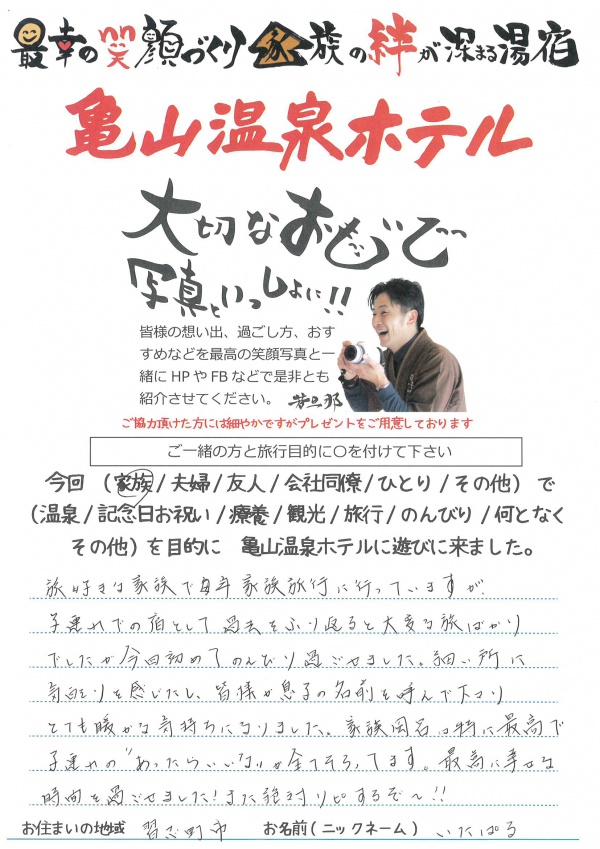 最幸の笑顔づくり 家族の絆が深まる湯宿
亀山温泉ホテル
大切なおもいで
写真といっしょに!!
皆様の想い出、過ごし方、おす
すめなどを最高の笑顔写真と一
緒に HP や FB などで是非とも
紹介させてください。 若旦那
ご協力頂けた方には細やかですがプレゼントをご用意しております
ご一緒の方と旅行目的に〇を付けて下さい
今回 (家族/夫婦/友人/会社同僚/ひとり/その他) で
(温泉/記念日お祝い/療養/観光/旅行/のんびり/何となく
その他) を目的に 亀山温泉ホテルに遊びに来ました。
旅好きな家族で毎年家族旅行に行っていますが
子連れでの宿として過去をふり返ると大変な旅ばかり
でしたが今回初めてのんびり過ごせました。細い所に
気配りを感じたし、皆様が息子の名前を呼んで下さり
とても暖かな気持ちになりました。家族風呂は特に最高で
子連れの"あったらいいな"が全てそろってます。最高に幸せな
時間を過ごせました!また絶対リピするぞ〜!!
お住まいの地域 習志野市 お名前(ニックネーム) いたぱる